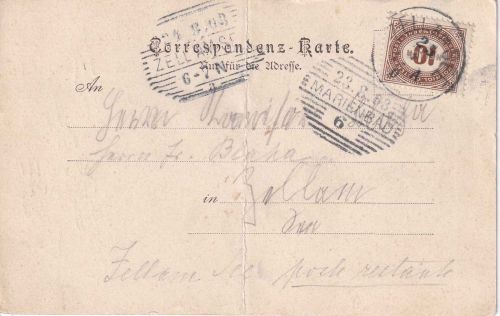 Correspondenz-Karte.
Nur für die Adresse.
24.8.03
ZELL AM SEE
6-7N
23.8.03
MARIENBAD
6
10
An
Herrn
Herrn Fr. Blaha
in Zell am
See
Zell am See poste restante